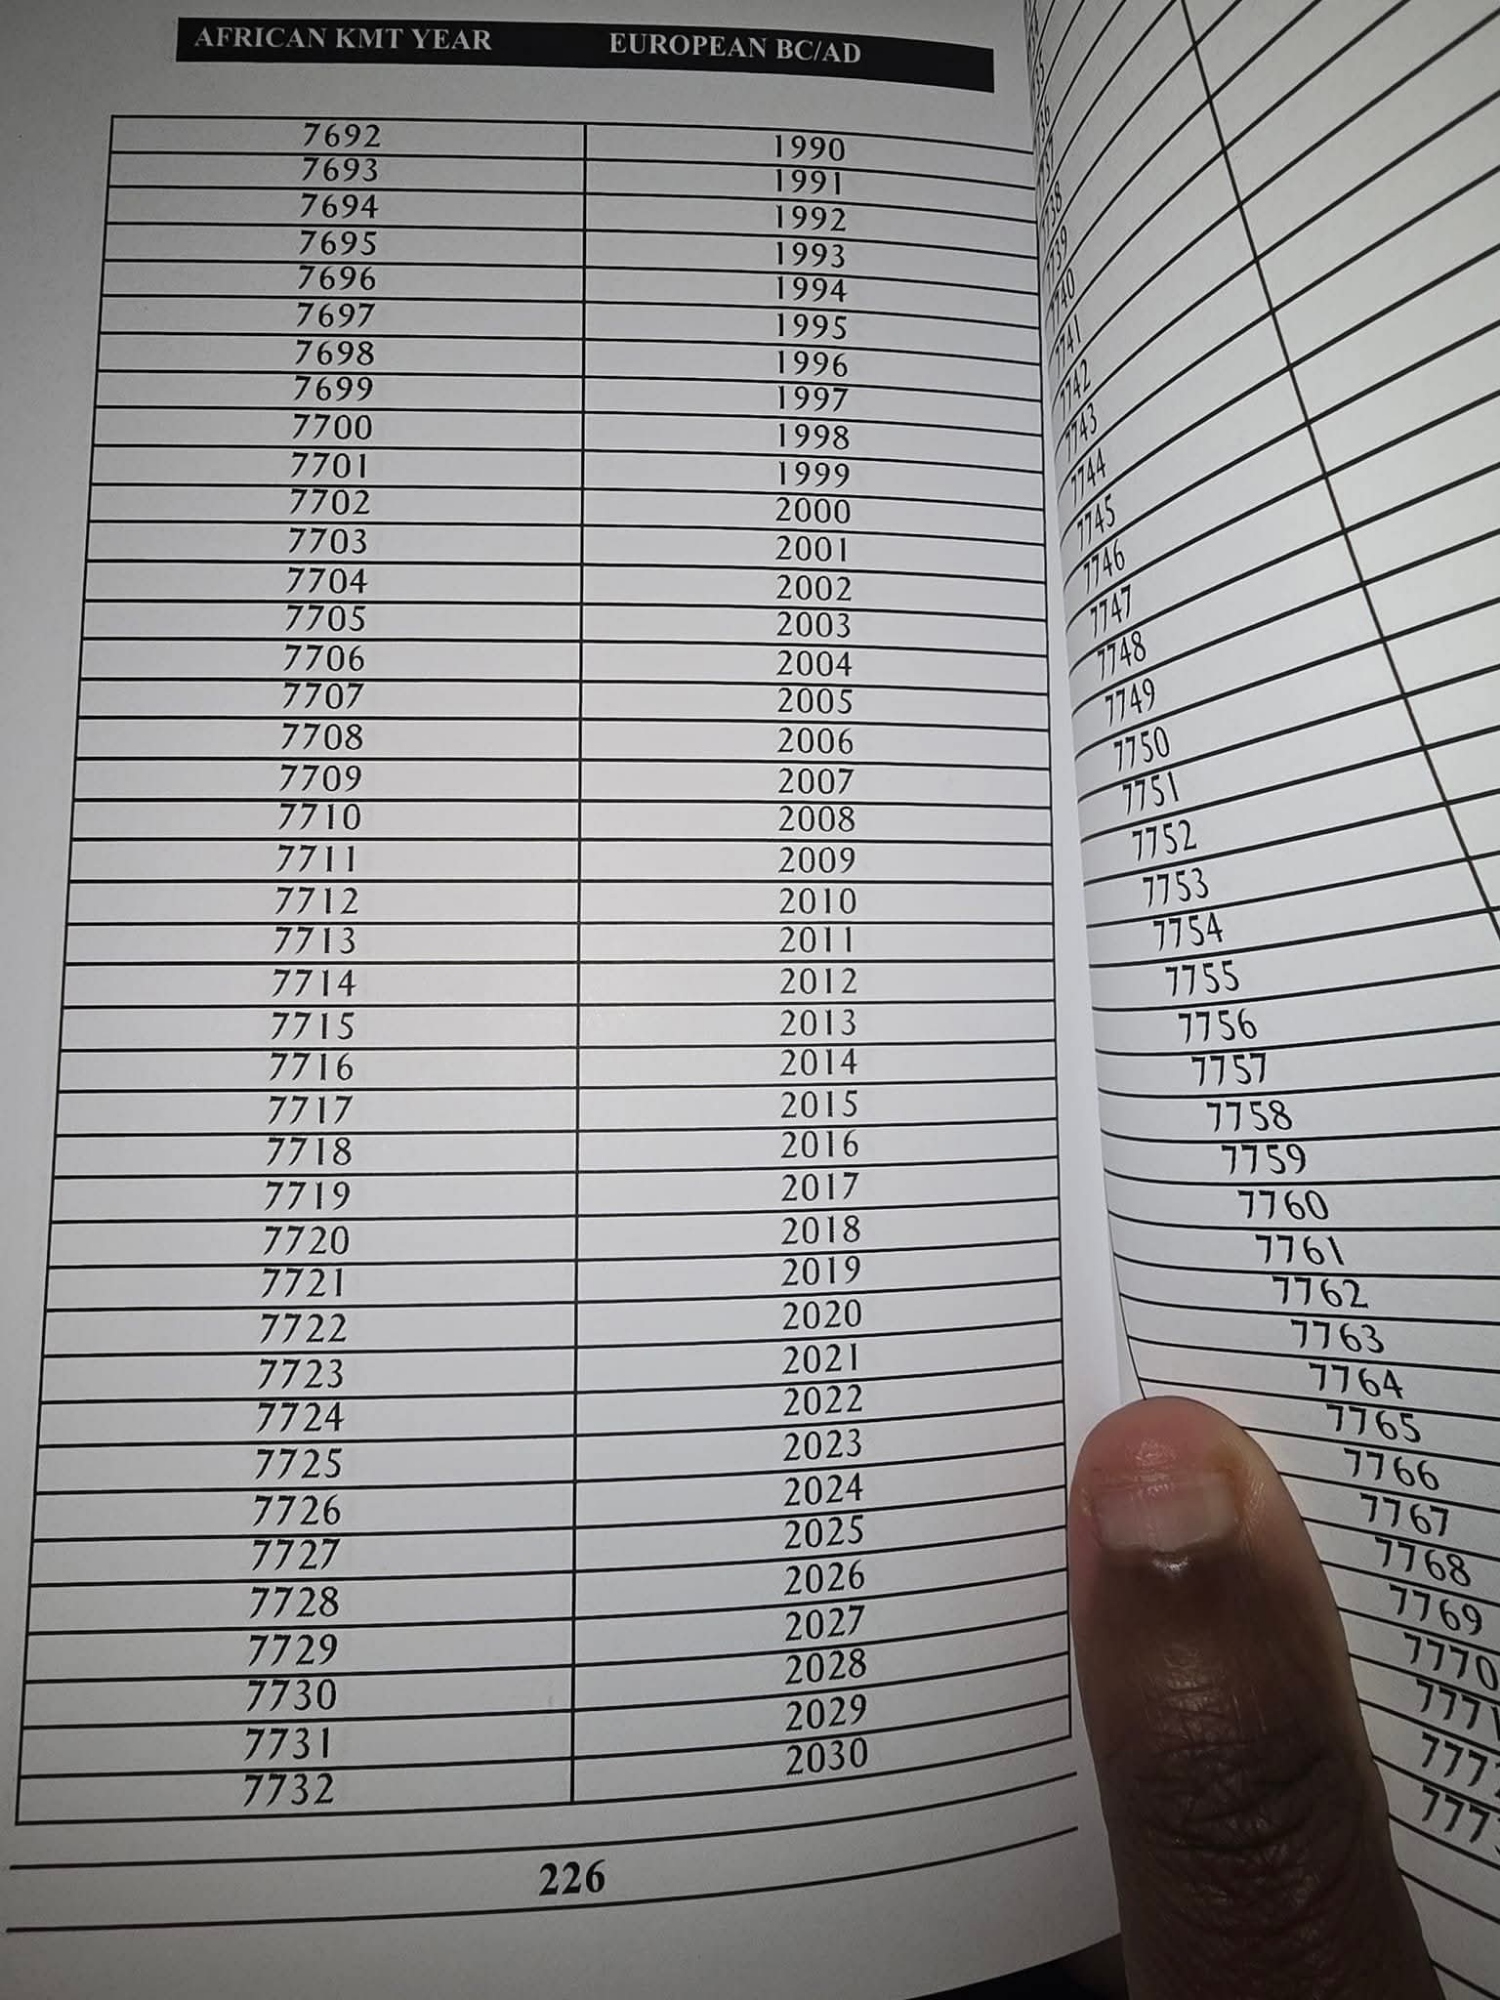 AFRICAN KMT YEAR EUROPEAN BC/AD
7692 1990
7693 1991
7694 1992
7695 1993
7696 1994
7697 1995
7698 1996
7699 1997
7700 1998
7701 1999
7702 2000
7703 2001
7704 2002
7705 2003
7706 2004
7707 2005
7708 2006
7709 2007
7710 2008
7711 2009
7712 2010
7713 2011
7714 2012
7715 2013
7716 2014
7717 2015
7718 2016
7719 2017
7720 2018
7721 2019
7722 2020
7723 2021
7724 2022
7725 2023
7726 2024
7727 2025
7728 2026
7729 2027
7730 2028
7731 2029
7732 2030
226
7740
7741
7742
7743
7744
7745
7746
7747
7748
7749
7750
7751
7752
7753
7754
7755
7756
7757
7758
7759
7760
7761
7762
7763
7764
7765
7766
7767
7768
7769
7770